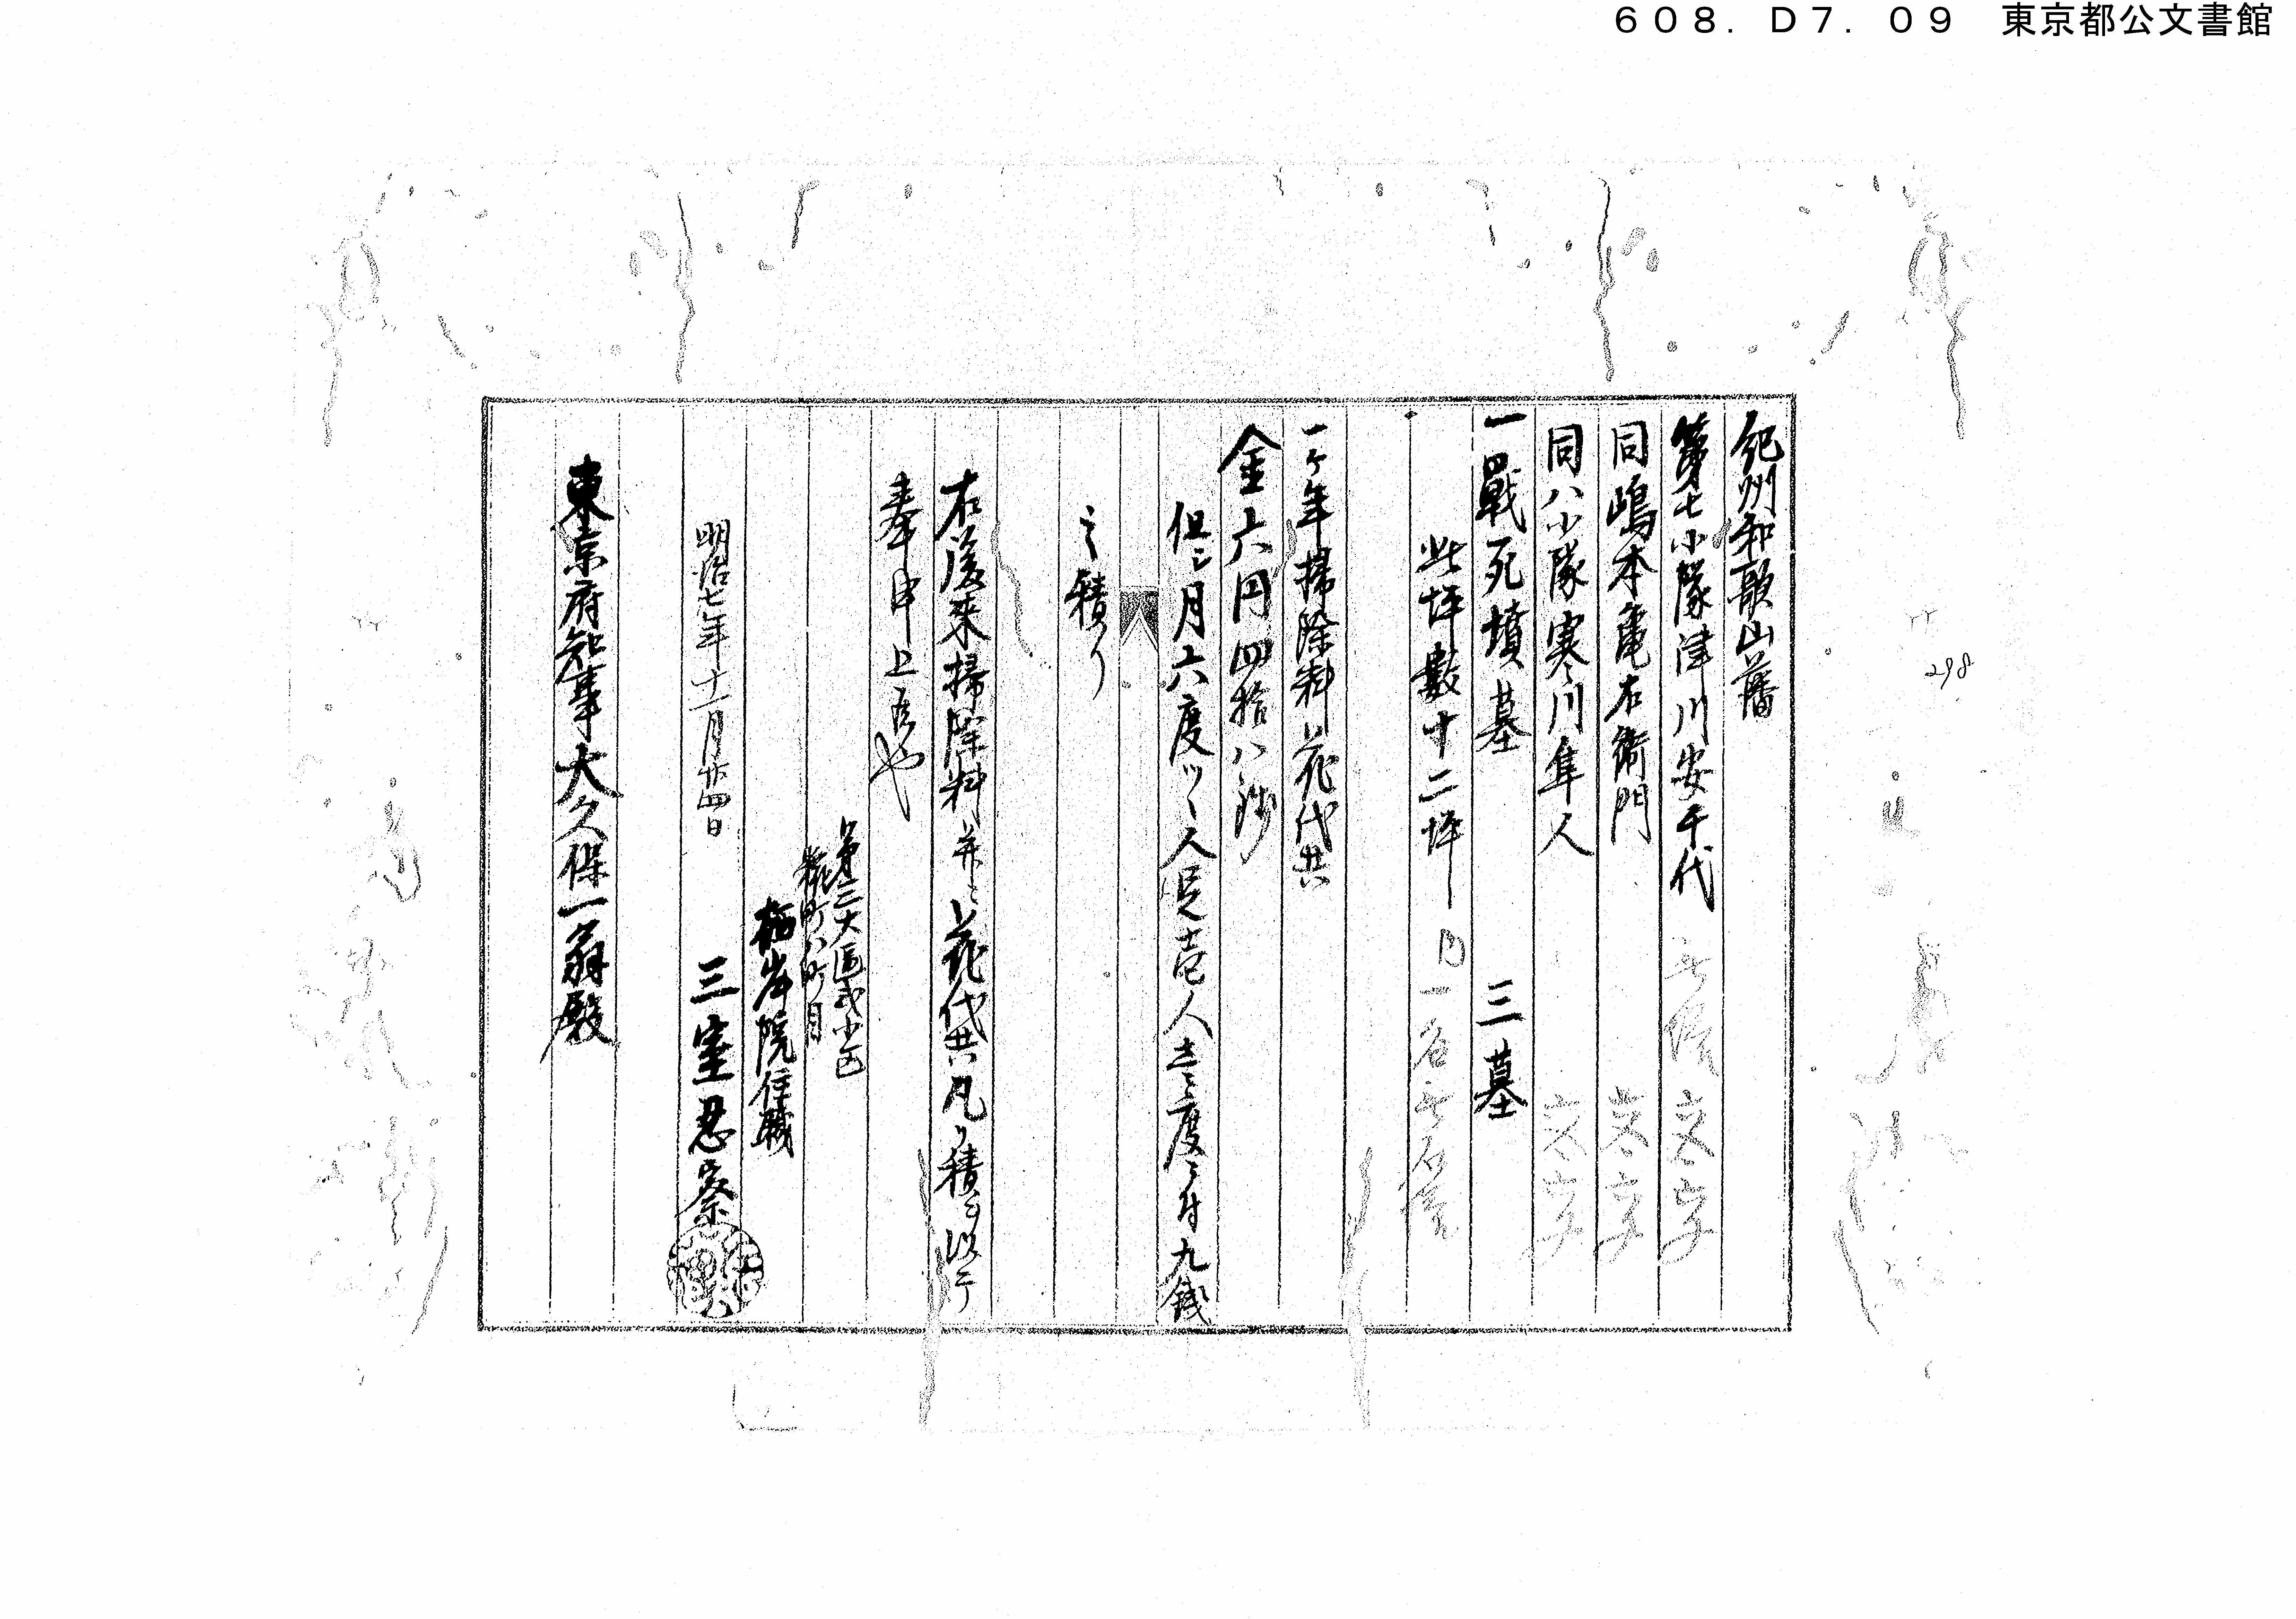 608. D7. 09 東京都公文書館
紀州和歌山藩
第七小隊津川安千代
同嶋本亀右衛門
同八小隊寒川隼人
一戦死墳墓 三墓
此坪數十二坪
一ヶ年掃除料花代共
金六円四拾八銭
但シ月六度ツヽ人足壱人壱度ニ付九銭
之積り
右後来掃除料并ニ花代共凡り積ヲ以テ
奉申上候也
第三大區弐小区
麹町八町目
栖岸院住職
明治七年十一月廿四日 三室忍察
東京府知事大久保一翁殿
298